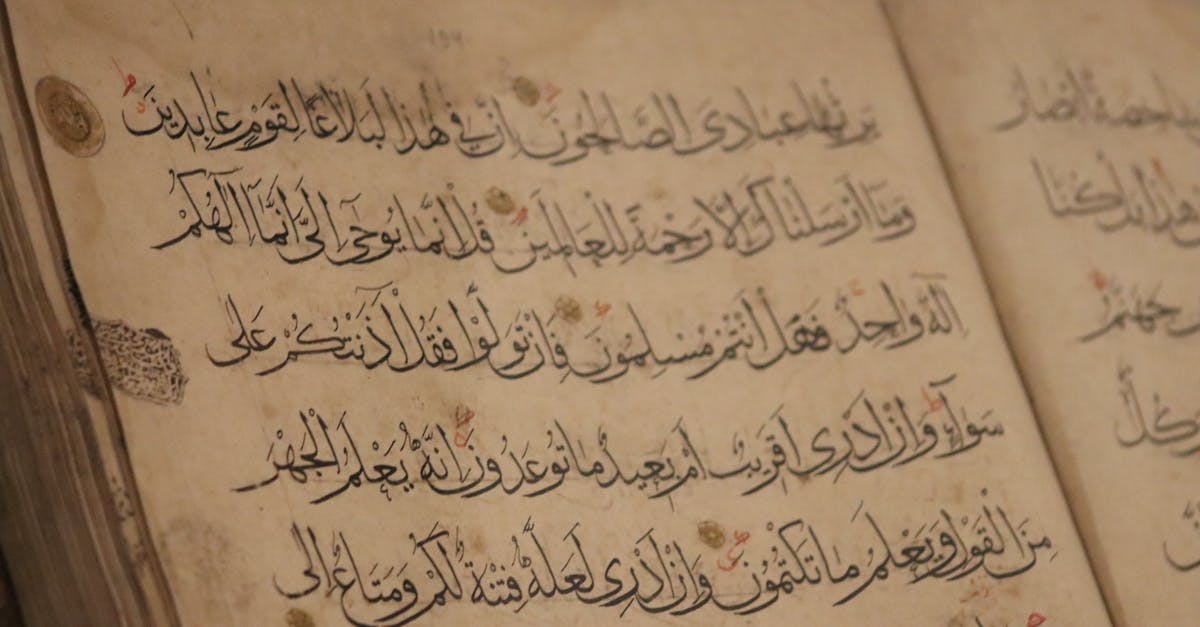 يَرِثُهَا عِبَادِيَ الصَّالِحُونَ اِنَّ فِي هٰذَا لَبَلَاغًا لِقَوْمٍ عَابِدِينَ
وَمَا اَرْسَلْنَاكَ اِلَّا رَحْمَةً لِلْعَالَمِينَ قُلْ اِنَّمَا يُوحٰى اِلَيَّ اَنَّمَا اِلٰهُكُمْ
اِلٰهٌ وَاحِدٌ فَهَلْ اَنْتُمْ مُسْلِمُونَ فَاِنْ تَوَلَّوْا فَقُلْ اٰذَنْتُكُمْ عَلٰى
سَوَاءٍ وَاِنْ اَدْرِى اَقَرِيبٌ اَمْ بَعِيدٌ مَا تُوعَدُونَ اِنَّهُ يَعْلَمُ الْجَهْرَ
مِنَ الْقَوْلِ وَيَعْلَمُ مَا تَكْتُمُونَ وَاِنْ اَدْرِى لَعَلَّهُ فِتْنَةٌ لَكُمْ وَمَتَاعٌ اِلٰى
كُنَّا
جَهَنَّمَ
وَكُلٌّ